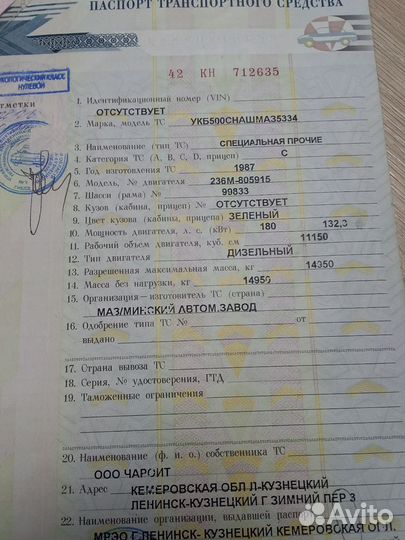 ПАСПОРТ ТРАНСПОРТНОГО СРЕДСТВА
42 КН 712635
ЭКОЛОГИЧЕСКИЙ КЛАСС
НУЛЕВОЙ
отметки
1. Идентификационный номер (VIN)
ОТСУТСТВУЕТ
2. Марка, модель ТС УКБ500СНАШМАЗ5334
3. Наименование (тип ТС) СПЕЦИАЛЬНАЯ ПРОЧИЕ
4. Категория ТС (А, В, С, D, прицеп) С
5. Год изготовления ТС 1987
6. Модель, № двигателя 236М-805915
7. Шасси (рама) № 99833
8. Кузов (кабина, прицеп) № ОТСУТСТВУЕТ
9. Цвет кузова (кабины, прицепа) ЗЕЛЕНЫЙ
10. Мощность двигателя, л. с. (кВт) 180 132,3
11. Рабочий объем двигателя, куб. см 11150
12. Тип двигателя ДИЗЕЛЬНЫЙ
13. Разрешенная максимальная масса, кг 14950
14. Масса без нагрузки, кг 14950
15. Организация-изготовитель ТС (страна)
МАЗ/МИНСКИЙ АВТОМ.ЗАВОД
16. Одобрение типа ТС № от
выдано
17. Страна вывоза ТС
18. Серия, № удостоверения, ГТД
19. Таможенные ограничения
20. Наименование (ф. и. о.) собственника ТС
ООО ЧАРОИТ
21. Адрес КЕМЕРОВСКАЯ ОБЛ Л-КУЗНЕЦКИЙ
ЛЕНИНСК-КУЗНЕЦКИЙ Г ЗИМНИЙ ПЕР 3
22. Наименование организации, выдавшей паспорт
МРЭО Г.ЛЕНИНСК- КУЗНЕЦКИЙ КЕМЕРОВСКАЯ ОБЛ.
Avito